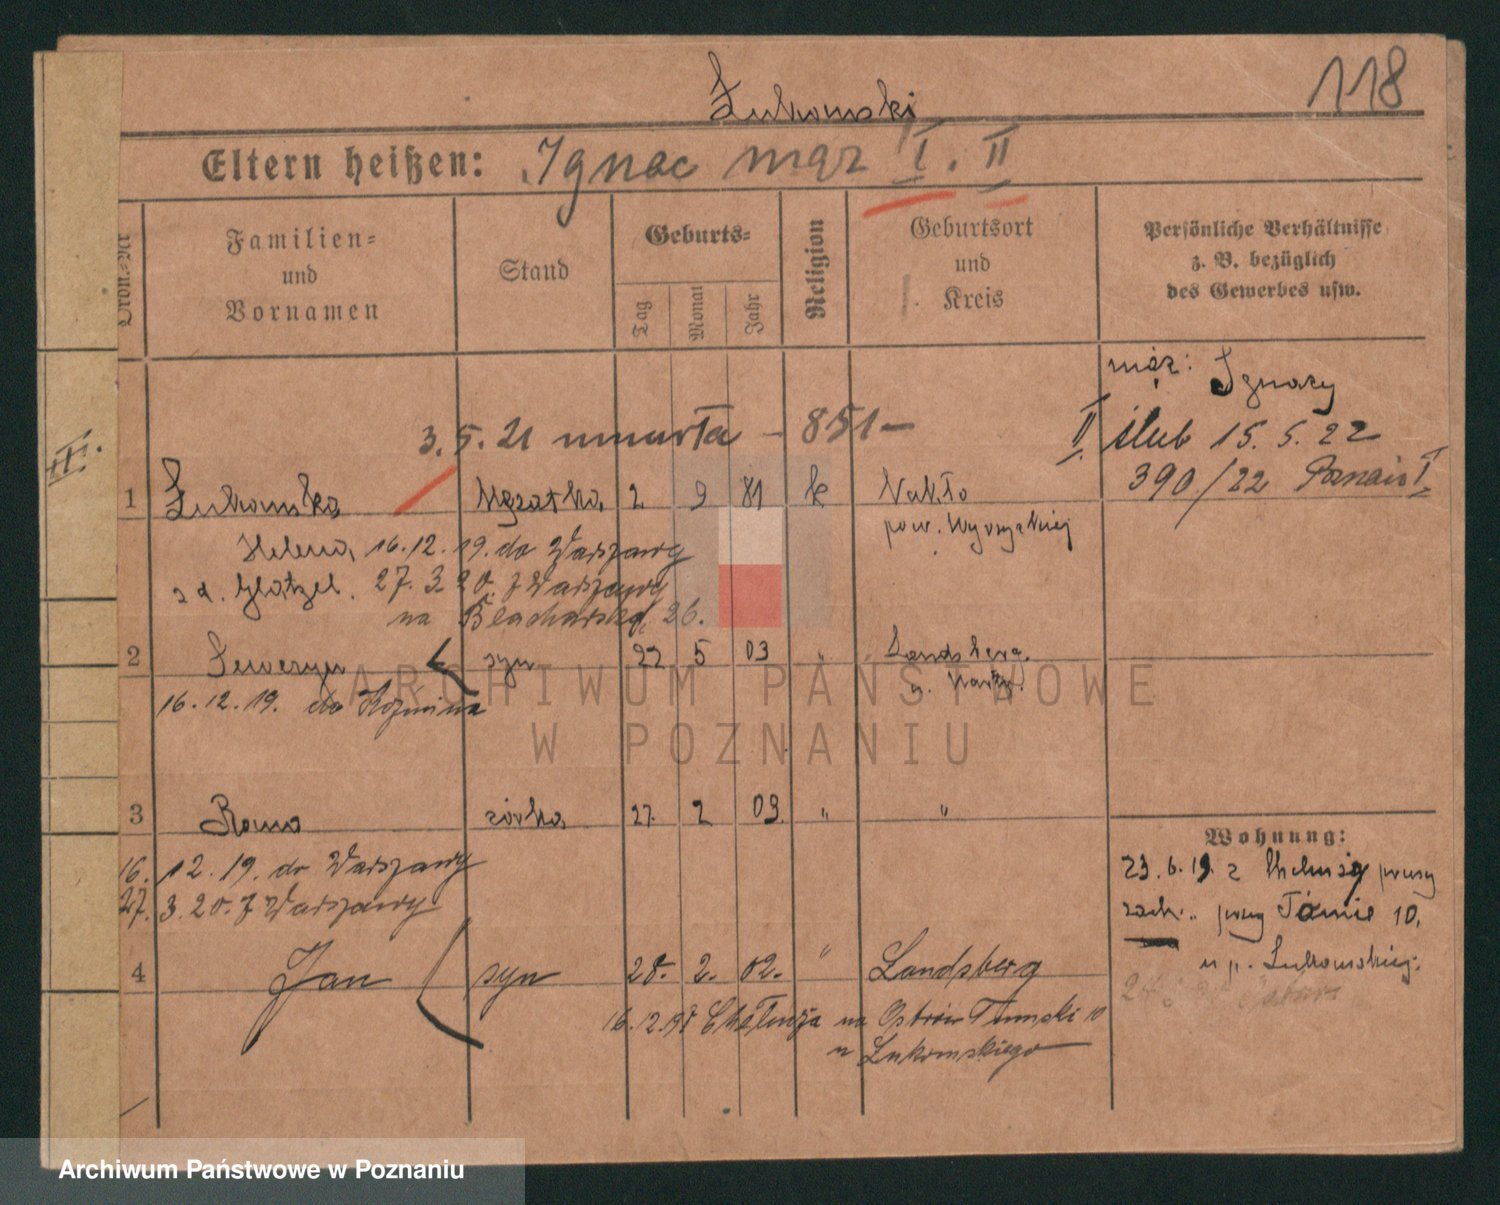 118
Łukomski
Eltern heißen: Ignac mąż I. II
Familien= und Vornamen
Stand
Geburts=
Tag
Monat
Jahr
Religion
Geburtsort und Kreis
Persönliche Verhältnisse z. B. bezüglich des Gewerbes usw.
mąż: Ignacy
3.5.21 umarła - 851-
II ślub 15.5.22
390/22 Poznań I
II.
1 Łukomska Mężatka 2 9 81 k Nakło
pow. Wyrzyskiej
Helena 16.12.19. do Warszawy
z d. Glatzel. 27.3.20. z Warszawy
na Blacharską 26.
2 Seweryn syn 22 5 03 " Landsberg
16.12.19. do Koźmina
3 Roma córka 27. 2 09. " "
16.12.19. do Warszawy
27.3.20. z Warszawy
Wohnung:
23.6.19. z Chełmży prusy
zach. przy Tamie 10.
u p. Łukomskiej.
4 Jan syn 28. 2. 02. " Landsberg
Chełmża na Ostrów Tumski 10
u Łukomskiego
ARCHIWUM PAŃSTWOWE
W POZNANIU
Archiwum Państwowe w Poznaniu